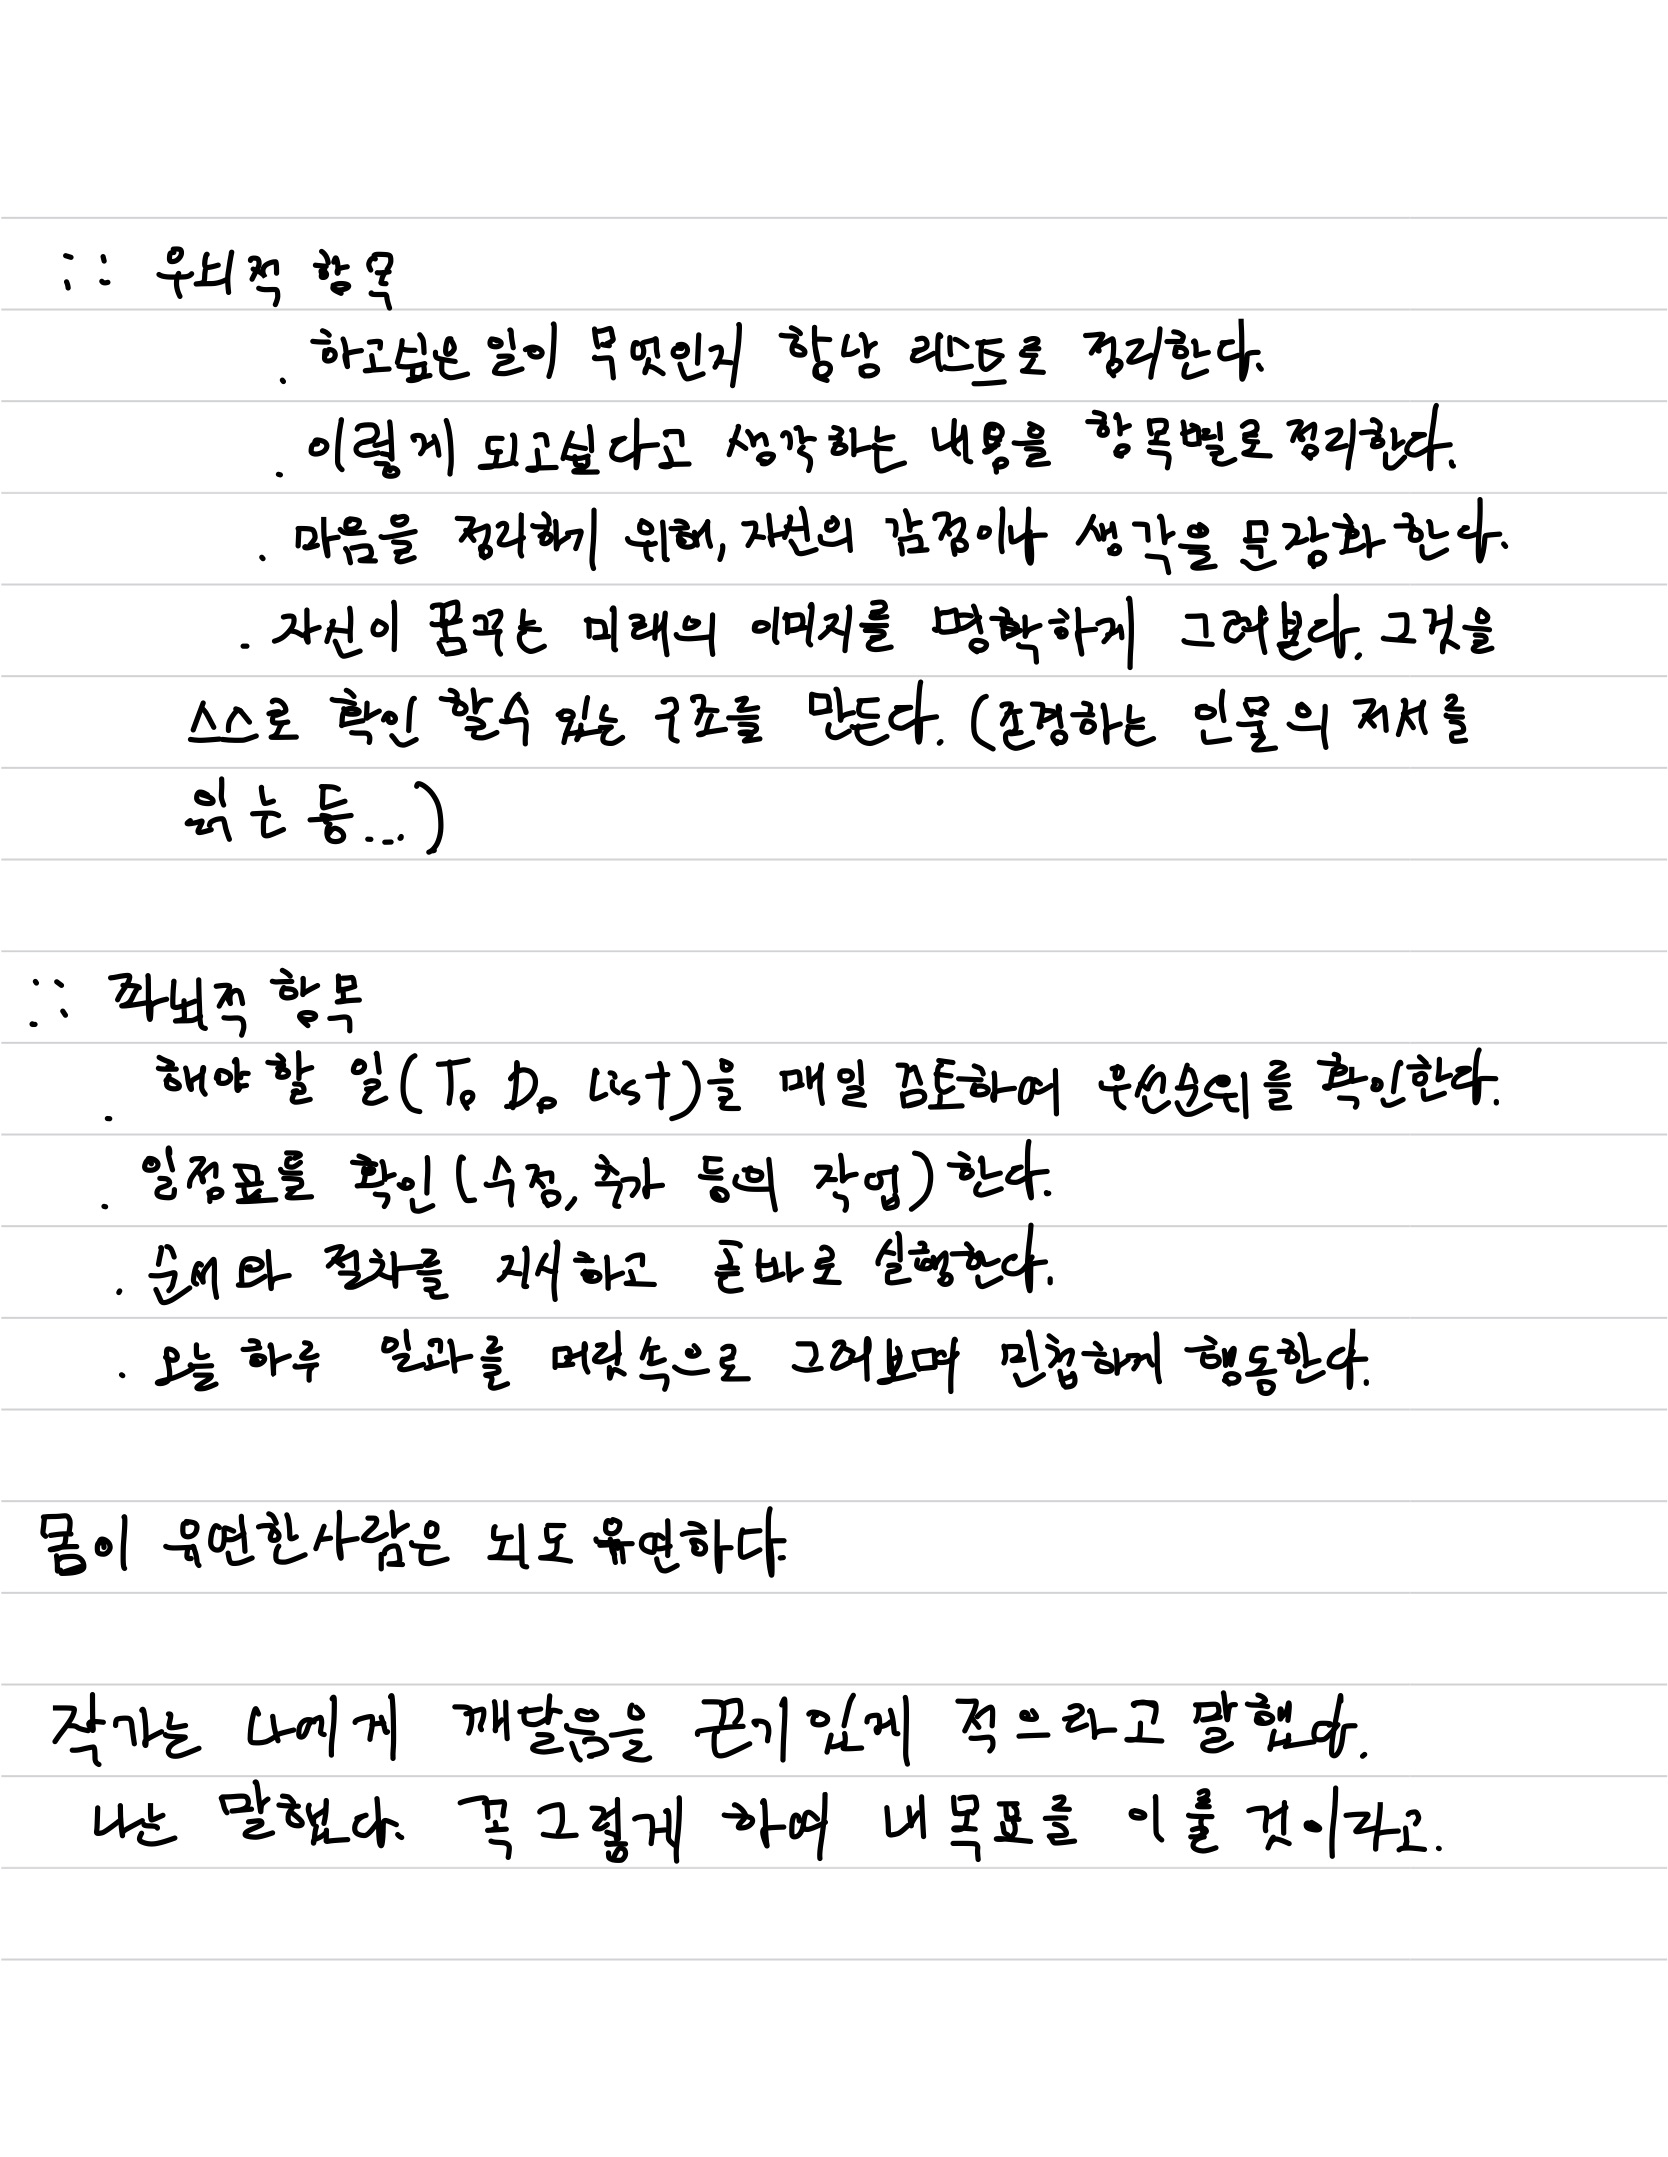 :: 우뇌적 항목
. 하고싶은 일이 무엇인지 항상 리스트로 정리한다.
. 이렇게 되고싶다고 생각하는 내용을 항목별로 정리한다.
. 마음을 정리하기 위해, 자신의 감정이나 생각을 문장화 한다.
. 자신이 꿈꾸는 미래의 이미지를 명확하게 그려본다. 그것을
스스로 확인 할수 있는 구조를 만든다. (존경하는 인물의 저서를
읽는 등...)
:: 좌뇌적 항목
. 해야 할 일(To Do List)을 매일 검토하여 우선순위를 확인한다.
. 일정표를 확인(수정, 추가 등의 작업)한다.
. 순서와 절차를 지시하고 곧바로 실행한다.
. 오늘 하루 일과를 머릿속으로 그려보며 민첩하게 행동한다.
몸이 유연한사람은 뇌도 유연하다.
작가는 나에게 깨달음을 끈기있게 적으라고 말했다.
나는 말했다. 꼭 그렇게 하여 내 목표를 이룰 것이라고.